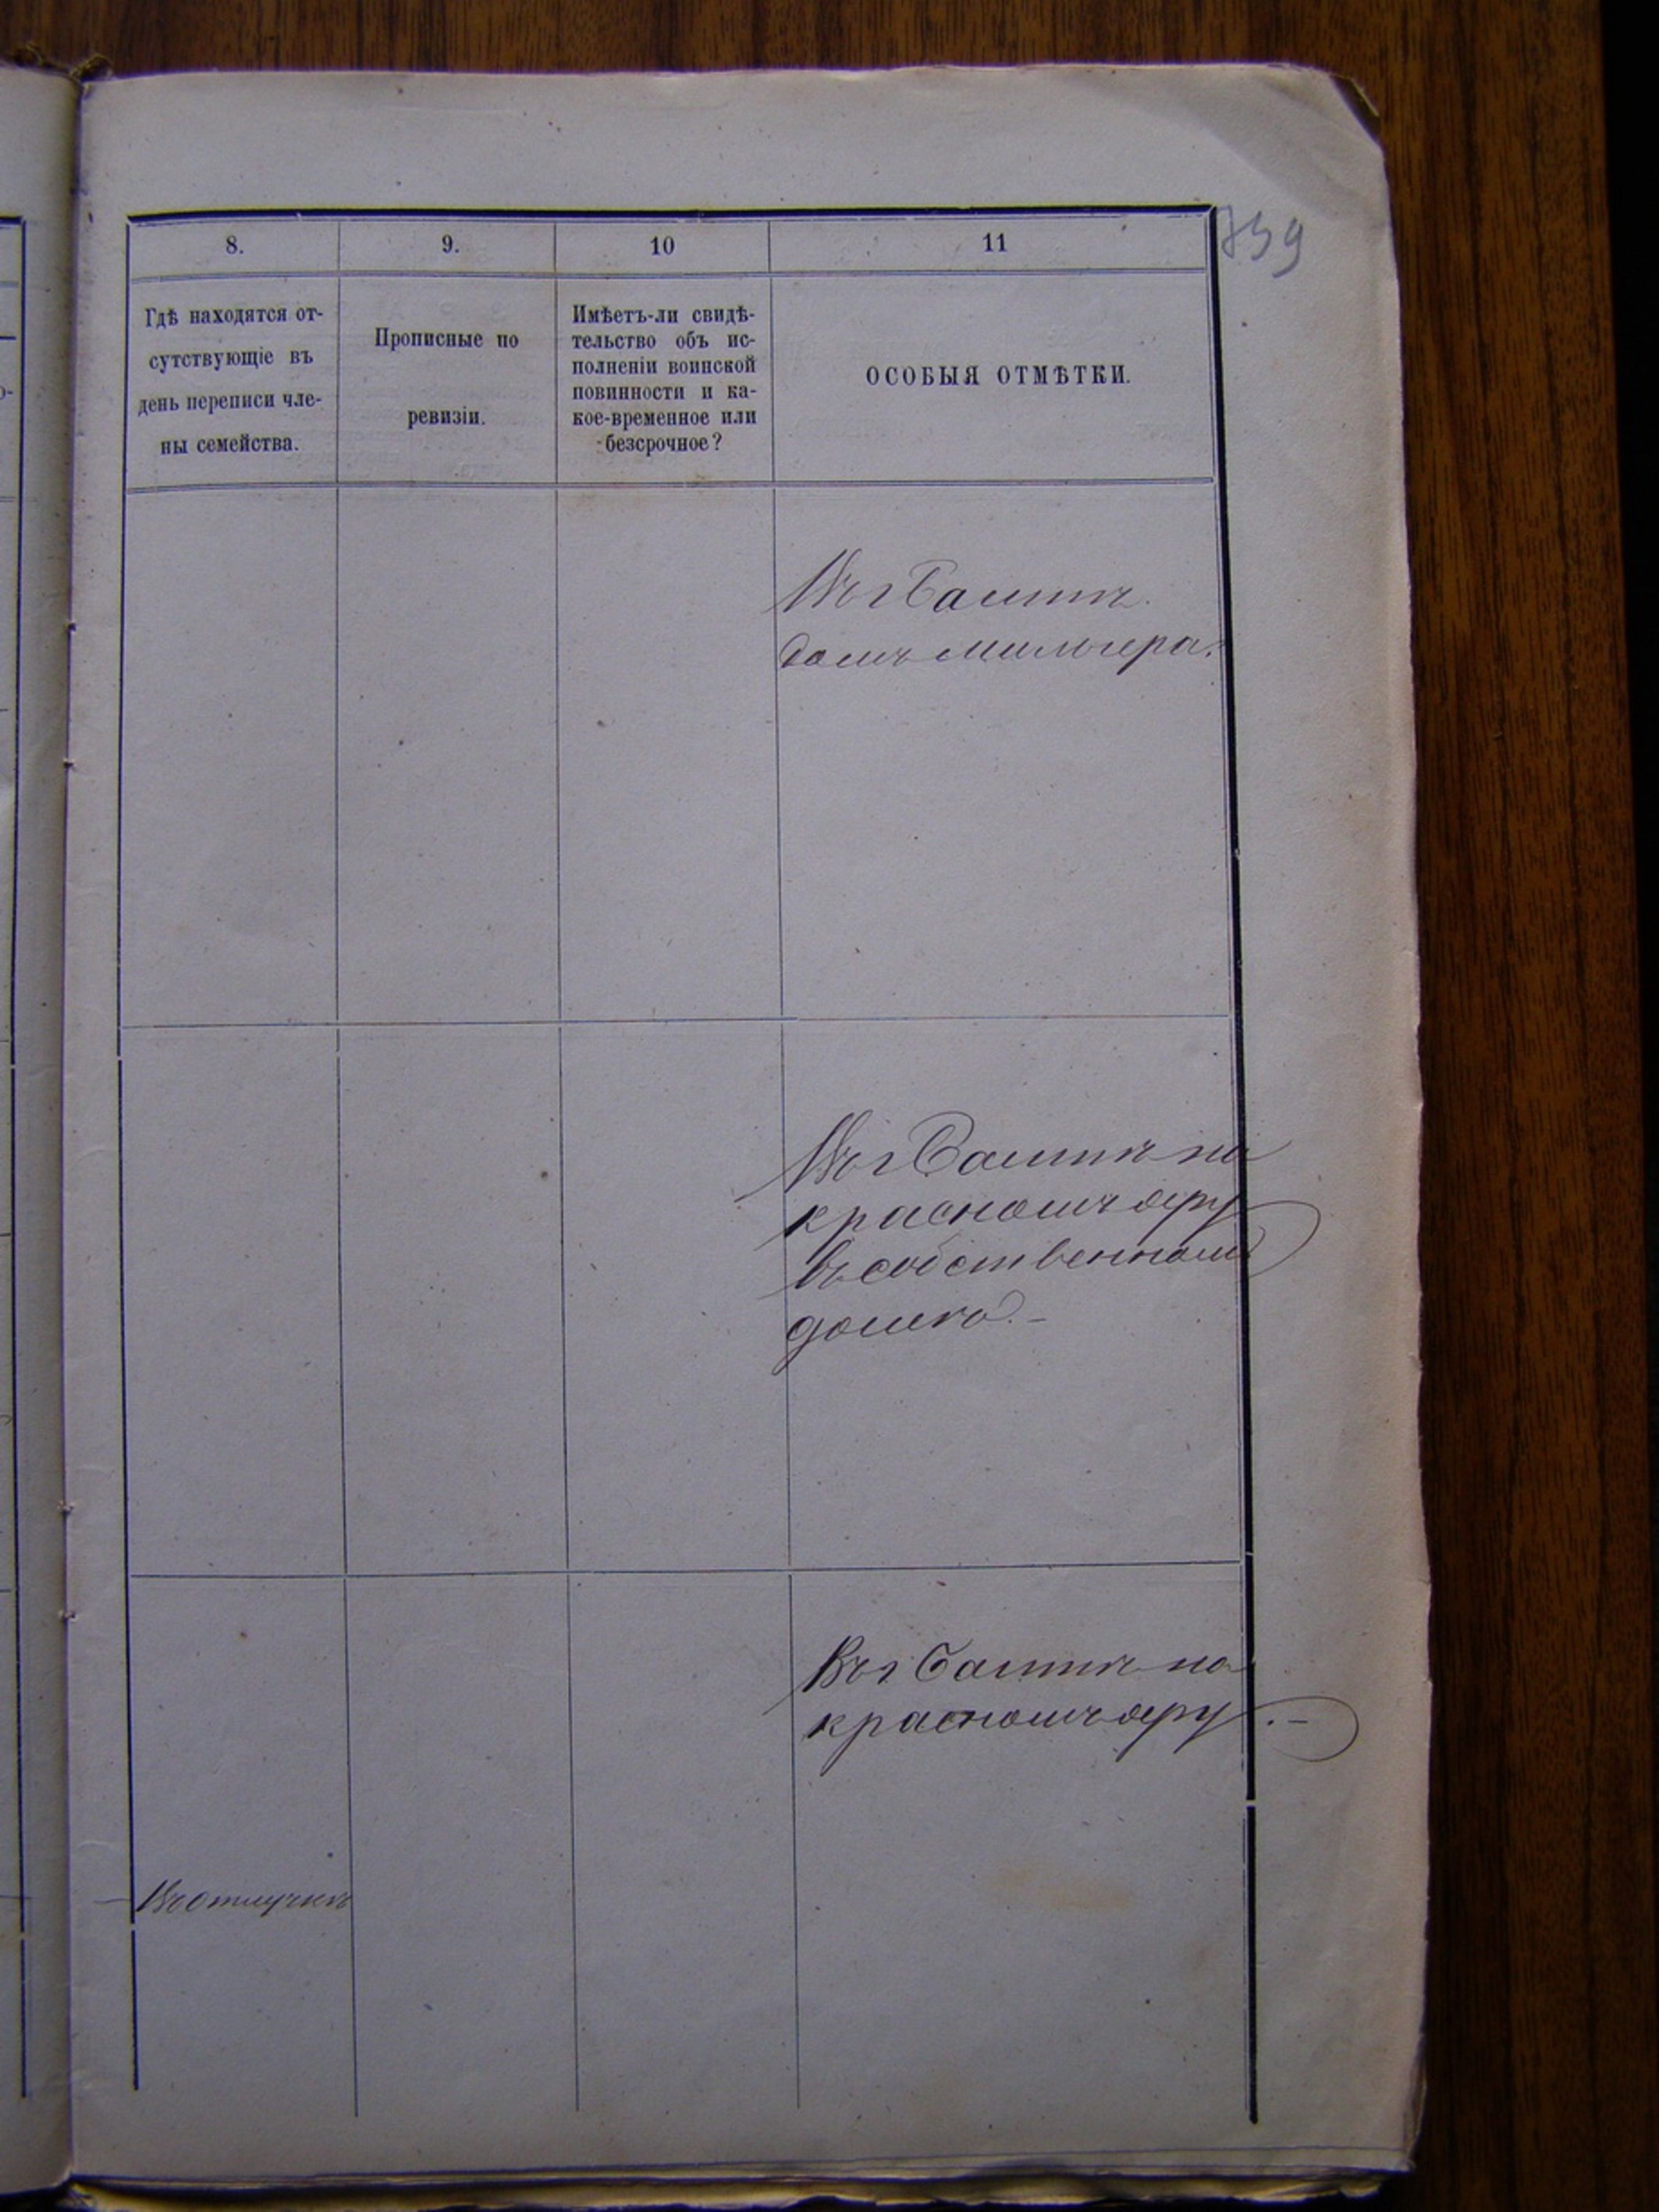 759
8.
9.
10
11
Гдѣ находятся от-
сутствующіе въ
день переписи чле-
ны семейства.
Прописные по
ревизіи.
Имѣетъ-ли свидѣ-
тельство объ ис-
полненіи воинской
повинности и ка-
кое-временное или
безсрочное?
ОСОБЫЯ ОТМѢТКИ.
Въ г Балтѣ
домъ
Въ г Балтѣ на
красномъ яру
въ собственномъ
домѣ. –
Въ г Балтѣ на
красномъ яру. –
Въ отлучкѣ